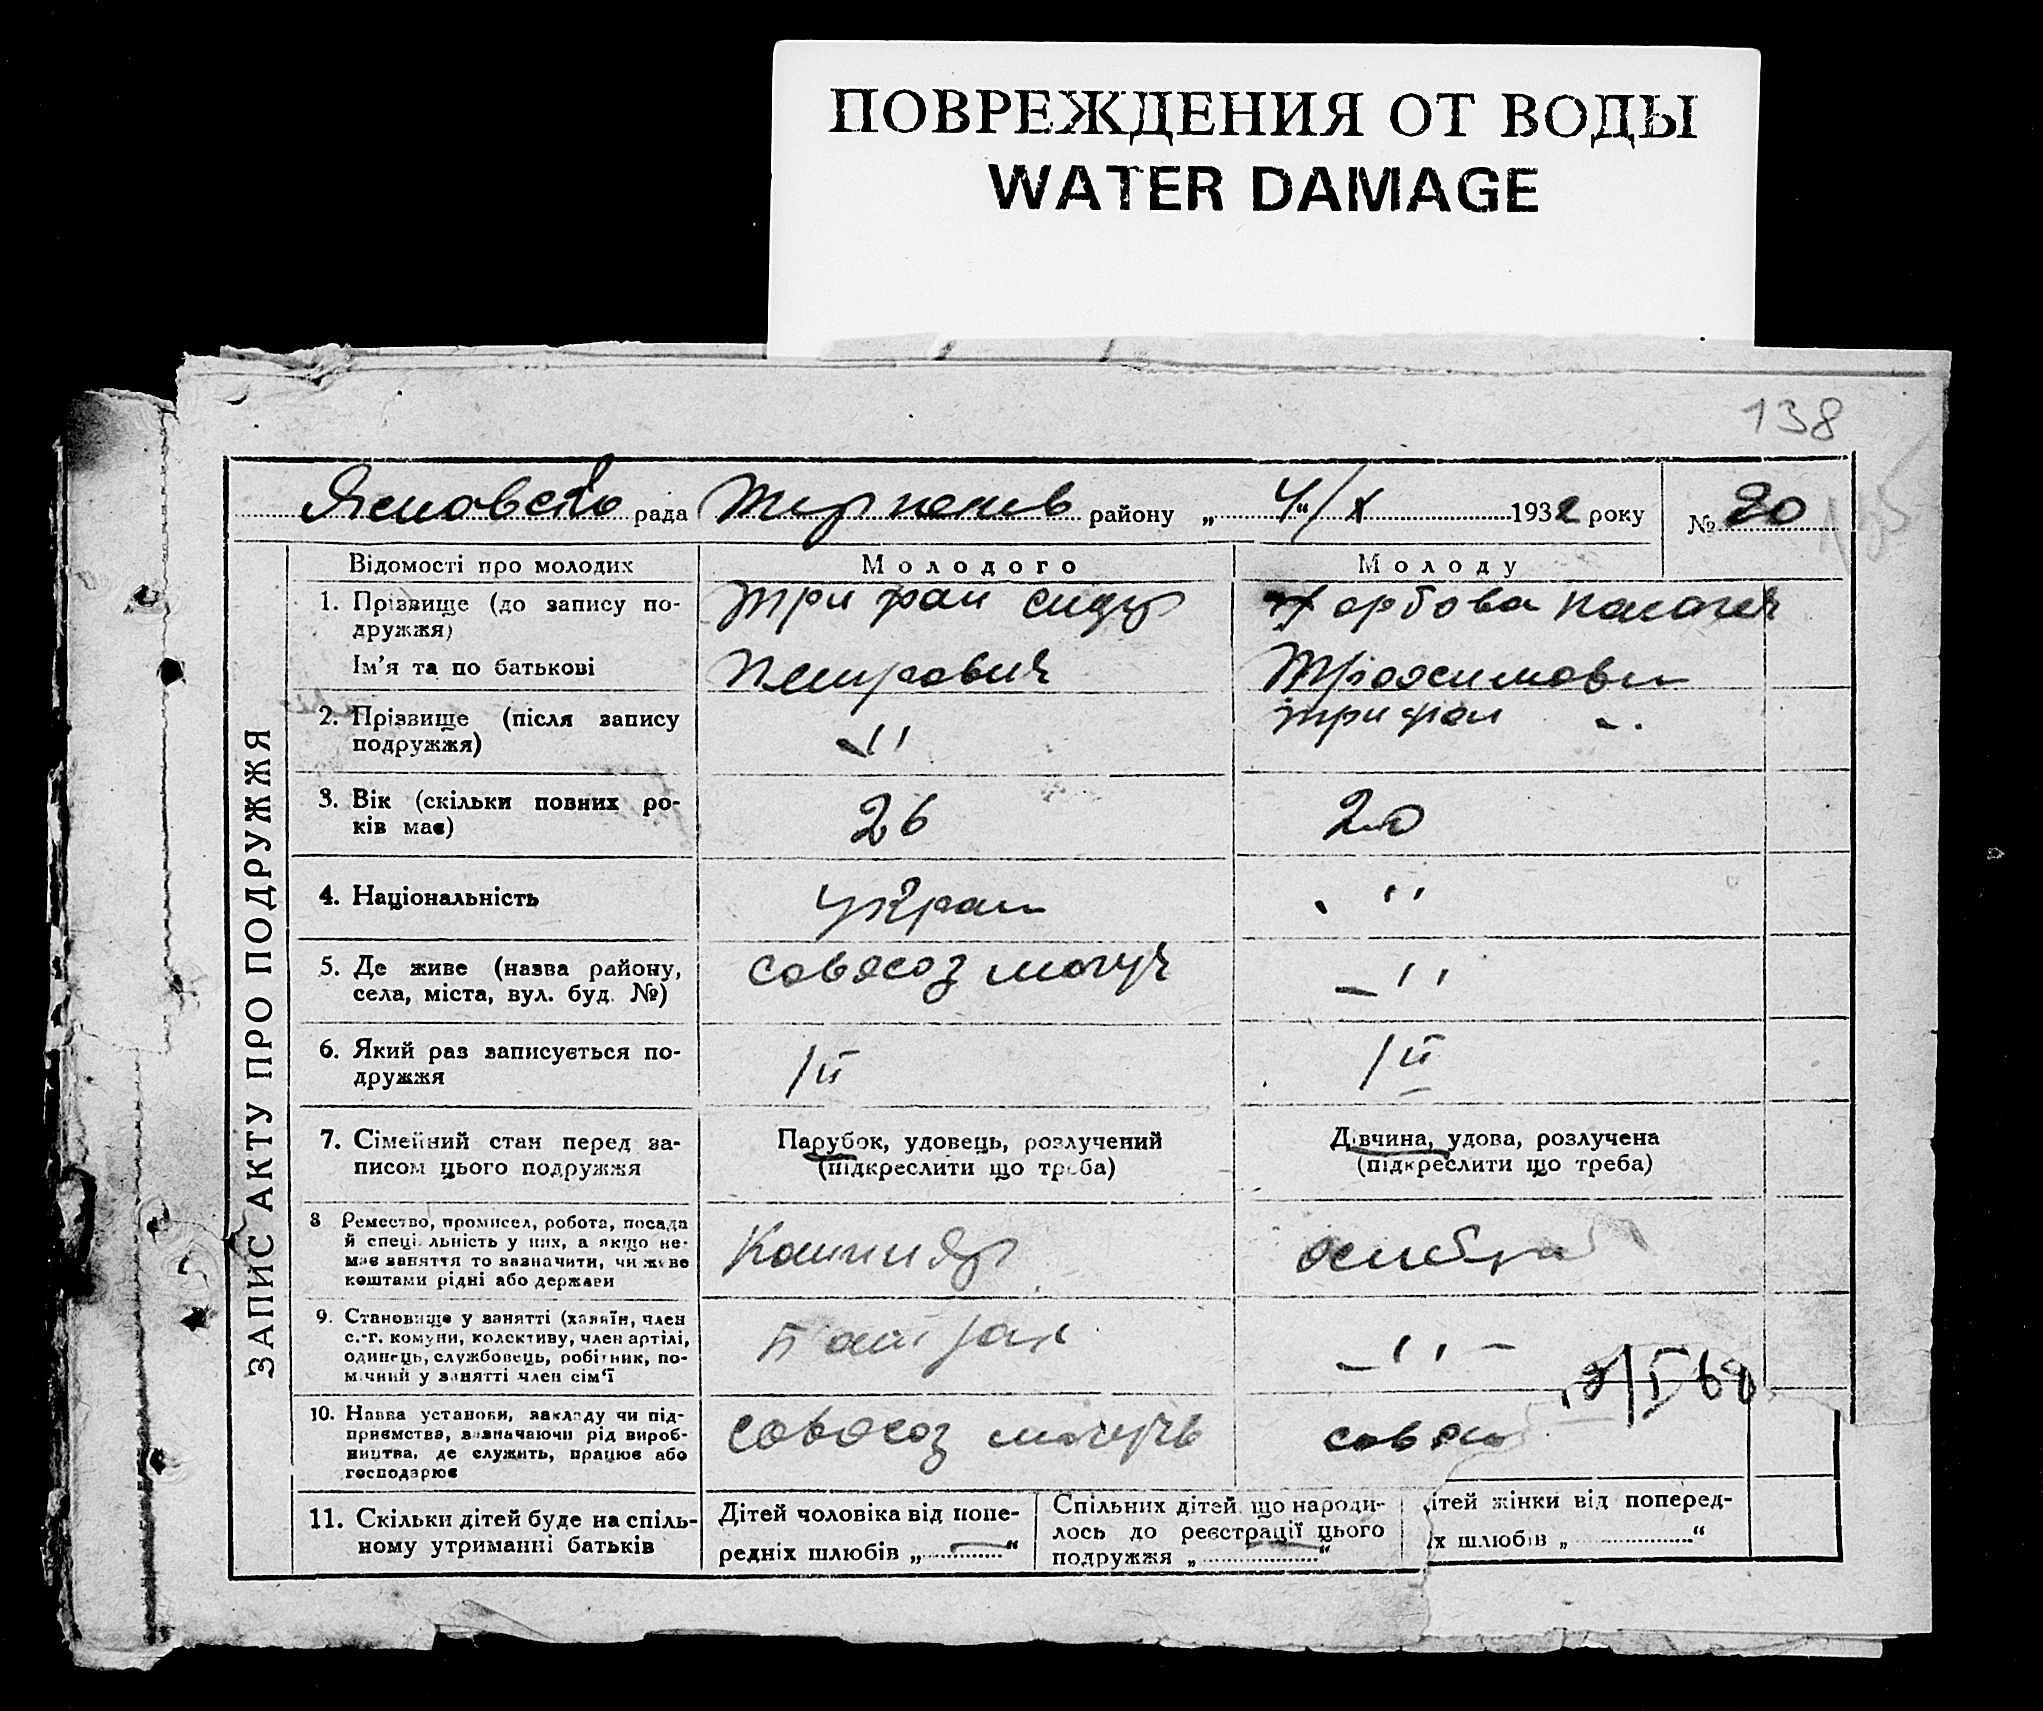 ПОВРЕЖДЕНИЯ ОТ ВОДЫ
WATER DAMAGE
138
рада району „ 4 “ / X 1932 року № 20
ЗАПИС АКТУ ПРО ПОДРУЖЖЯ
Відомості про молодих Молодого Молоду
1. Прізвище (до запису по-
дружжя)
Трифан Сидор
Горбова
Ім'я та по батькові
Петрович
2. Прізвище (після запису
подружжя)
-״
Трифан -
3. Вік (скільки повних ро-
ків має)
26
20
4. Національність
Украин
-״
5. Де живе (назва району,
села, міста, вул. буд. №)
совхоз могуч
-״
6. Який раз записується по-
дружжя
1й
1й
7. Сімейний стан перед за-
писом цього подружжя
Парубок, удовець, розлучений
(підкреслити що треба)
Дівчина, удова, розлучена
(підкреслити що треба)
8 Ремество, промисел, робота, посада
й спеціальність у них, а якщо не-
має заняття то зазначити, чи живе
коштами рідні або держави
9. Становище у занятті (хазяїн, член
с.-г. комуни, колективу, член артілі,
одинець, службовець, робітник, по-
мічний у занятті член сім'ї
Батрак
-״-
10. Назва установи, закладу чи під-
приємства, зазначаючи рід вироб-
ництва, де служить, працює або
господарює
совхоз могучь
11. Скільки дітей буде на спіль-
ному утриманні батьків
Дітей чоловіка від попе-
редніх шлюбів „ — “
Спільних дітей, що народи-
лось до реєстрації цього
подружжя „ — “
ітей жінки від поперед-
іх шлюбів „ “